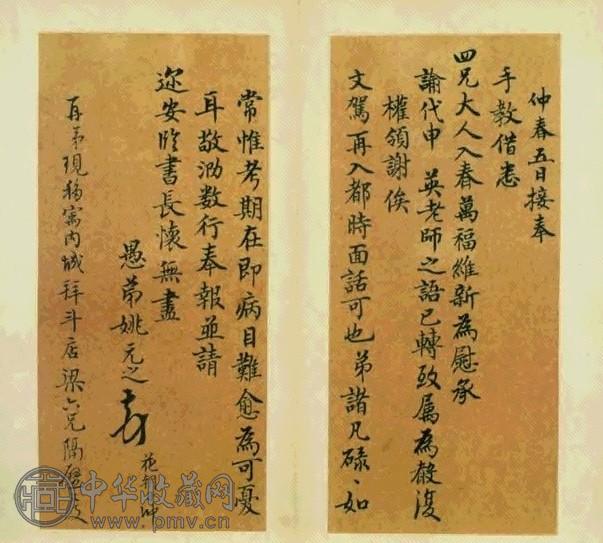 仲春五日接奉
手教借悉
四兄大人入春萬福維新為慰承
諭代申 英老師之語已轉致属為
權頒謝俟
文駕再入都時面話可也弟諸凡碌、如
常惟考期在即病目難愈為可憂
耳敬泐数行奉報並請
迩安臨書長懷無盡
愚弟姚元之
再弟現移寓内城拜斗店梁六兄隔壁
中华收藏网
www.pmv.cn